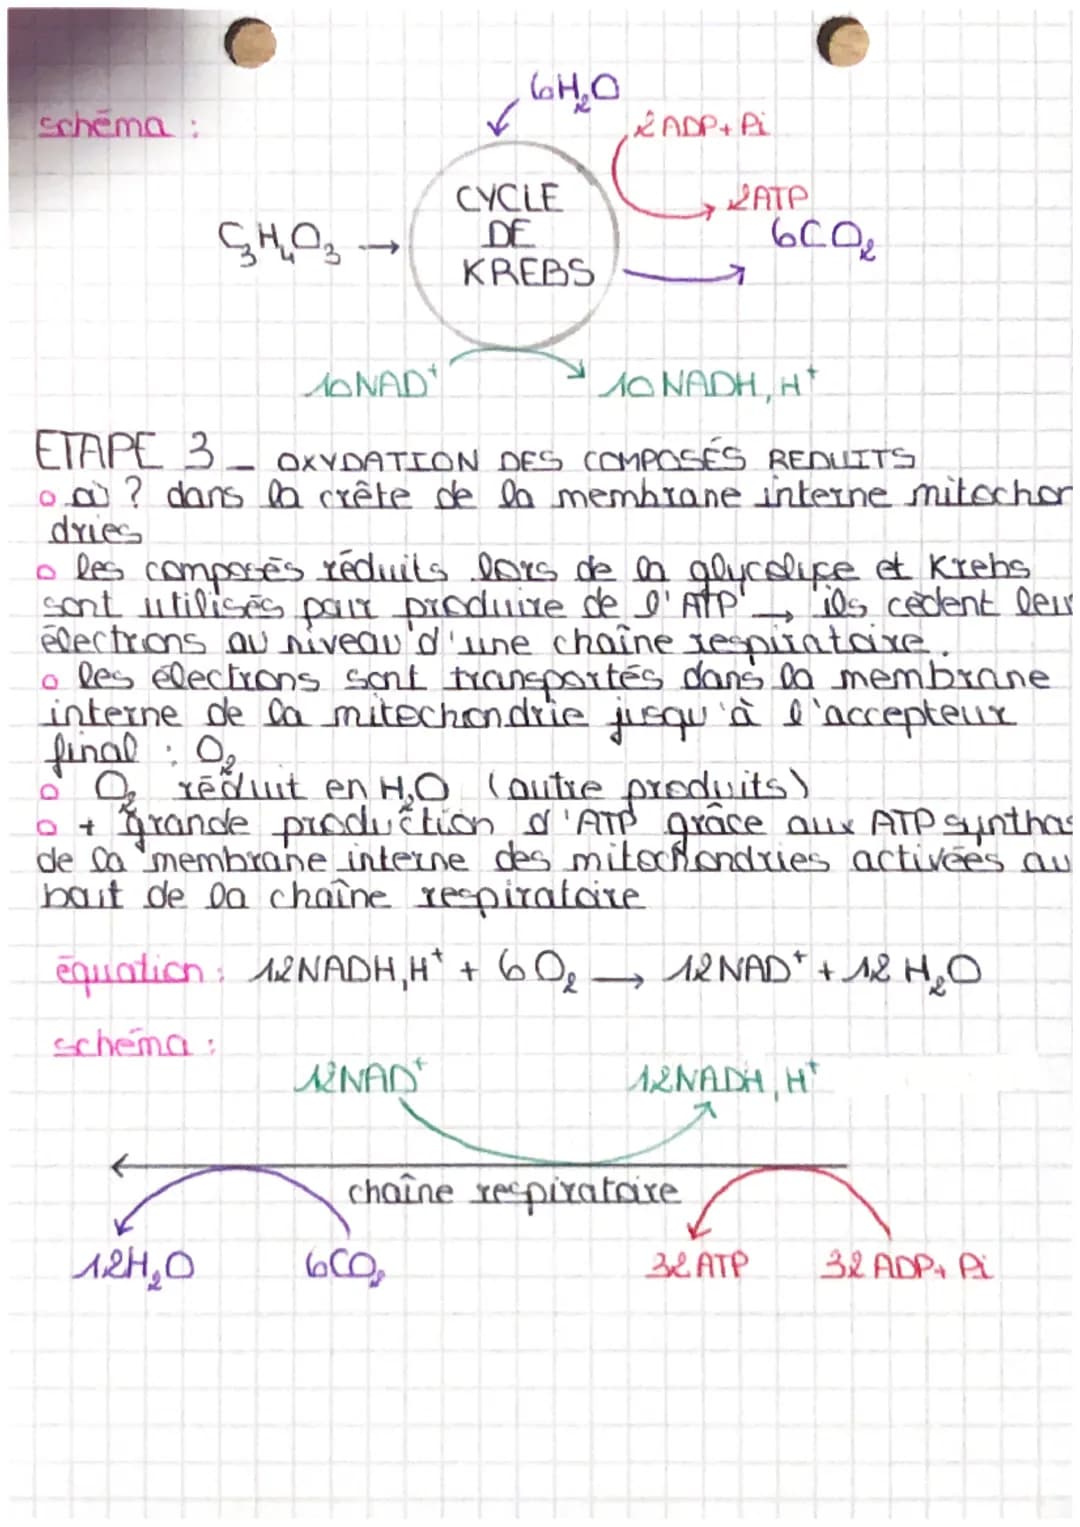 schéma :
6H₂O
2 ADP+ Pi
CYCLE
DE
KREBS
2ATP
6CO₂
C₃H₄O₃ →
10NAD⁺
10 NADH, H⁺
ETAPE 3 _ OXYDATION DES COMPOSÉS REDUITS
où ? dans la crête de la membrane interne mitochon
dries
les composés réduits lors de la glycolise et Krebs
sont utilisés pour produire de l'ATP → ils cèdent leur
électrons au niveau d'une chaîne respiratoire.
les électrons sont transportés dans la membrane
interne de la mitochondrie jusqu'à l'accepteur
final : O₂
O₂ réduit en H₂O (autre produits)
+ grande production d'ATP grâce aux ATP synthas
de la membrane interne des mitochondries activées au
bout de la chaîne respiratoire
équation : 12NADH,H⁺ + 6O₂ → 12NAD⁺ + 12 H₂O
schéma :
12NAD⁺
12NADH, H⁺
chaîne respiratoire
12H₂O
6CO₂
32 ATP
32 ADP+ Pi